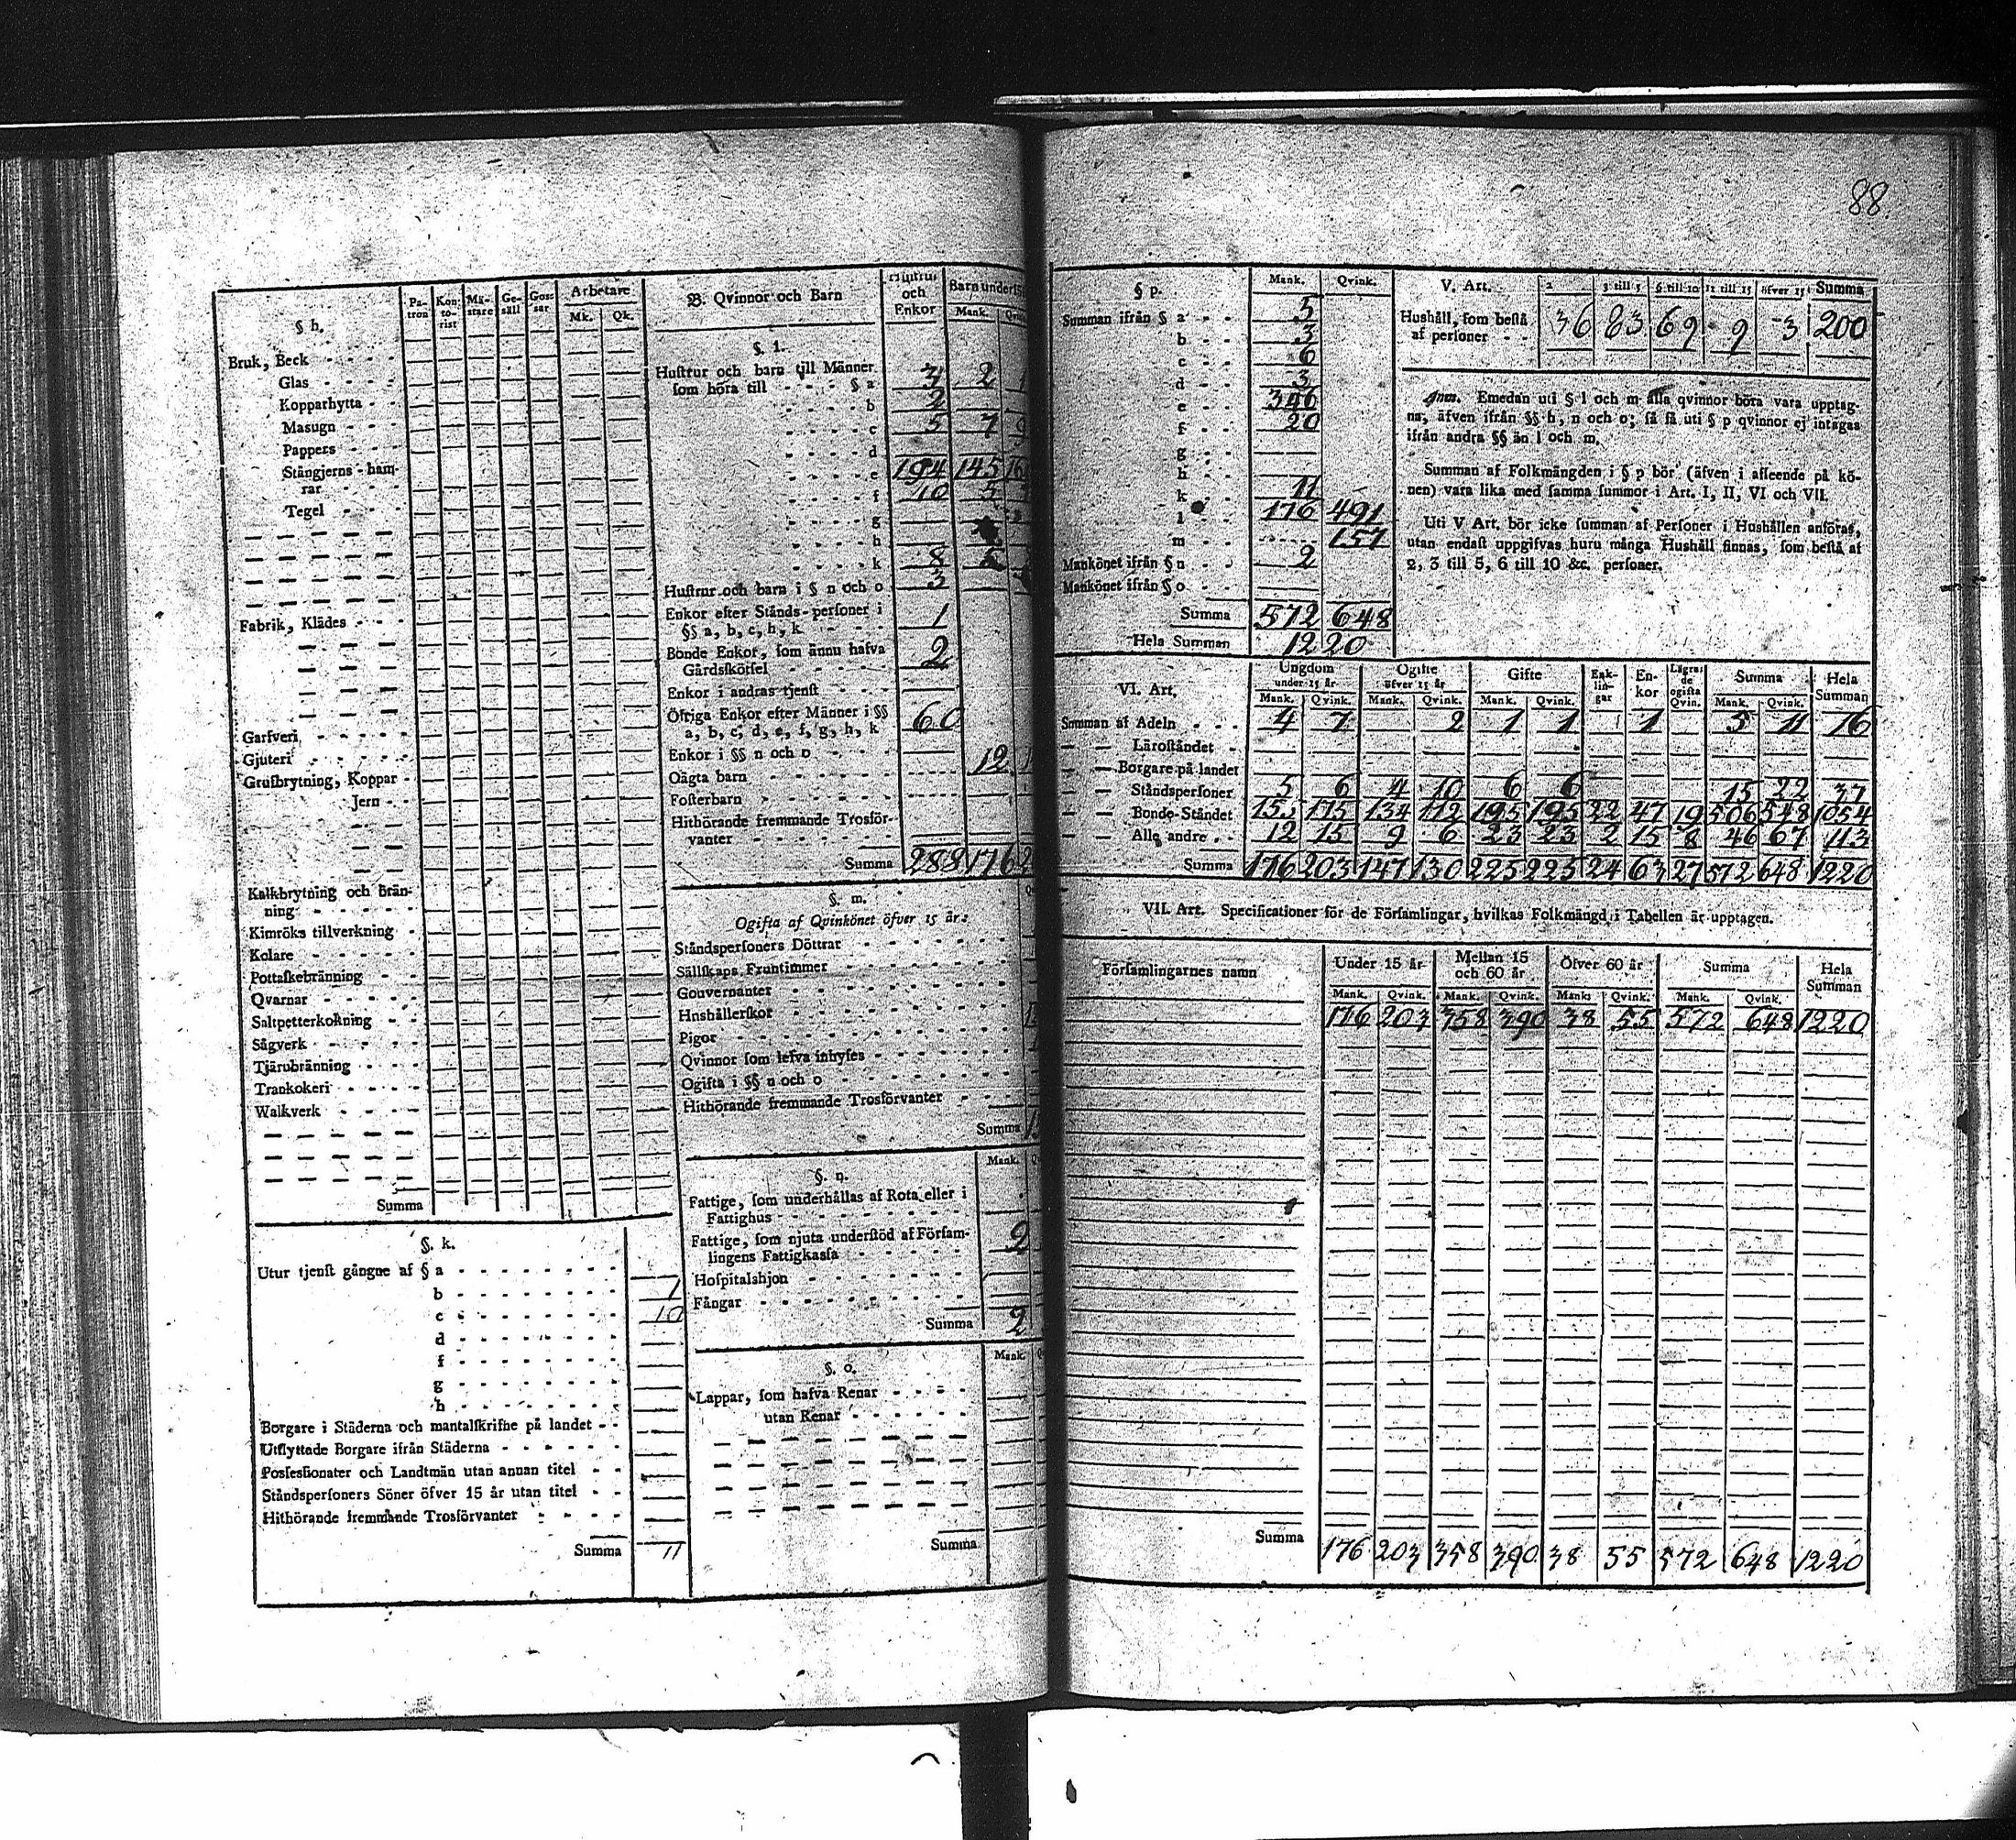 88
§ h.
Pa-tron
Kon-to-rist
Mä-stare
Ge-säll
Gos-sar
Arbetare
Mk. Qk.
Bruk, Beck
Glas
Kopparhytta
Masugn
Pappers
Stångjerns-ham-
rar
Tegel
Fabrik, Klädes
Garfveri
Gjuteri
Grufbrytning, Koppar
Jern
Kalkbrytning och brän-
ning
Kimröks tillverkning
Kolare
Pottaskebränning
Qvarnar
Saltpetterkokning
Sågverk
Tjärubränning
Trankokeri
Walkverk
Summa
§. k.
Utur tjenst gångne af § a
b 1
c 10
d
f
g
h
Borgare i Städerna och mantalskrifne på landet
Utflyttade Borgare ifrån Städerna
Possessionater och Landtmän utan annan titel
Ståndspersoners Söner öfver 15 år utan titel
Hithörande fremmande Trosförvanter
Summa 11
B. Qvinnor och Barn
Hustrur
och
Enkor
Barn under 15
Mank.
§. l.
Hustrur och barn till Männer
som höra till § a 3 2
b 2
c 5 7
d
e 194 145
f 10 5
g
h
k 8 5
Hustrur och barn i § n och o 3
Enkor efter Stånds-personer i
§§ a, b, c, h, k 1
Bonde Enkor, som ännu hafva
Gårdskötsel 2
Enkor i andras tjenst
Öfriga Enkor efter Männer i §§
a, b, c, d, e, f, g, h, k 60
Enkor i §§ n och o
Oägta barn 12
Fosterbarn
Hithörande fremmande Trosför-
vanter
Summa 288 176
§. m.
Ogifta af Qvinkönet öfver 15 år.
Ståndspersoners Döttrar
Sällskaps Fruntimmer
Gouvernanter
Hushållerskor
Pigor
Qvinnor som lefva inhyses
Ogifta i §§ n och o
Hithörande fremmande Trosförvanter
Summa
§. n.
Mank.
Fattige, som underhållas af Rota eller i
Fattighus
Fattige, som njuta understöd af Försam-
lingens Fattigkassa 2
Hospitalshjon
Fångar
Summa 2
§. o.
Mank.
Lappar, som hafva Renar
utan Renar
Summa
§ p. Mank. Qvink.
Summan ifrån § a 5
b 3
c 6
d 3
e 346
f 20
g
h
k 11
l 176 491
m 157
Mankönet ifrån § n 2
Mankönet ifrån § o
Summa 572 648
Hela Summan 1220
V. Art. 2 3 till 5 6 till 10 11 till 15 öfver 15 Summa
Hushåll, som bestå
af personer 36 83 69 9 3 200
Anm. Emedan uti § l och m alla qvinnor böra vara upptag-
na, äfven ifrån §§ h, n och o; så få uti § p qvinnor ej intagas
ifrån andra §§ än l och m.
Summan af Folkmängden i § p bör (äfven i afseende på kö-
nen) vara lika med samma summor i Art. I, II, VI och VII.
Uti V Art. bör icke summan af Personer i Hushållen anföras,
utan endast uppgifvas huru många Hushåll finnas, som bestå af
2, 3 till 5, 6 till 10 &c. personer.
VI. Art.
Ungdom
under 15 år
Ogifte
öfver 15 år
Gifte
Enk-lin-gar
En-kor
Lägra-de ogifta Qvin.
Summa
Hela
Summan
Mank. Qvink. Mank. Qvink. Mank. Qvink. Mank. Qvink.
Summan af Adeln 4 7 2 1 1 1 5 11 16
Läroståndet
Borgare på landet
Ståndspersoner 5 6 4 10 6 6 15 22 37
Bonde-Ståndet 155 175 134 112 195 195 22 47 19 506 548 1054
Alle andre 12 15 9 6 23 23 2 15 8 46 67 113
Summa 176 203 147 130 225 225 24 63 27 572 648 1220
VII. Art. Specificationer för de Församlingar, hvilkas Folkmängd i Tabellen är upptagen.
Församlingarnes namn
Under 15 år
Mellan 15
och 60 år
Öfver 60 år
Summa
Hela
Summan
Mank. Qvink. Mank. Qvink. Mank. Qvink. Mank. Qvink.
176 203 358 390 38 55 572 648 1220
Summa 176 203 358 390 38 55 572 648 1220